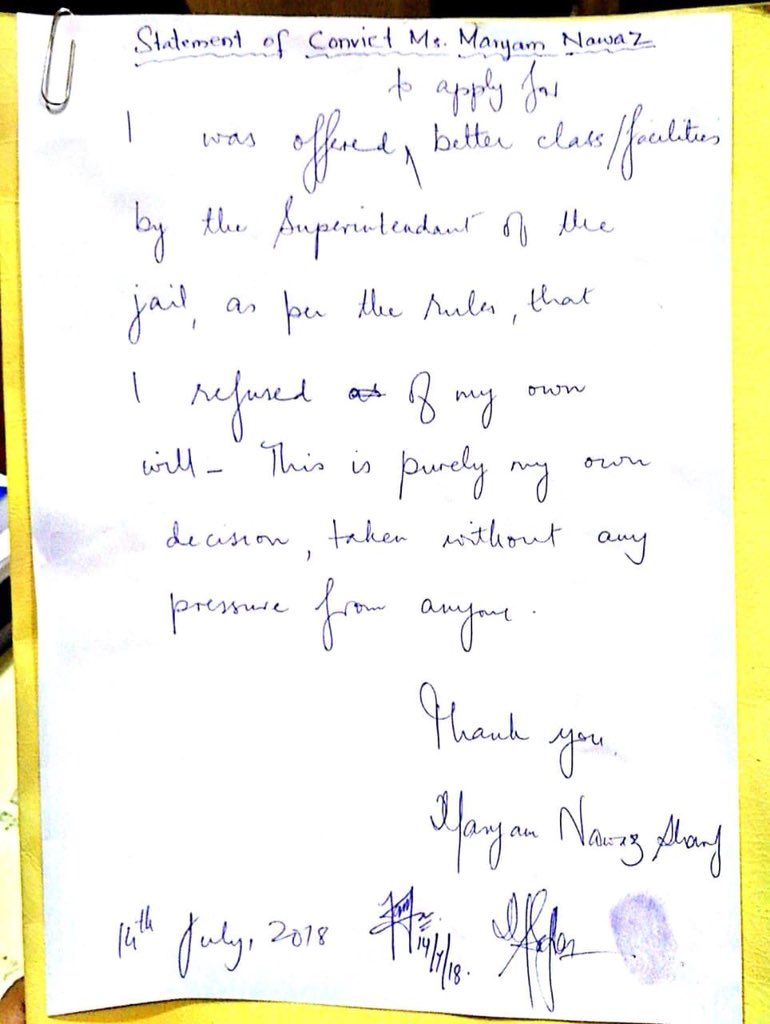 Statement of Convict Ms. Maryam Nawaz
to apply for
I was offered, better class/facilities
by the Superintendant of the
jail, as per the rules, that
I refused as of my own
will - This is purely my own
decision, taken without any
pressure from anyone.
Thank you.
Maryam Nawaz Sharif
14th July, 2018
14/7/18.